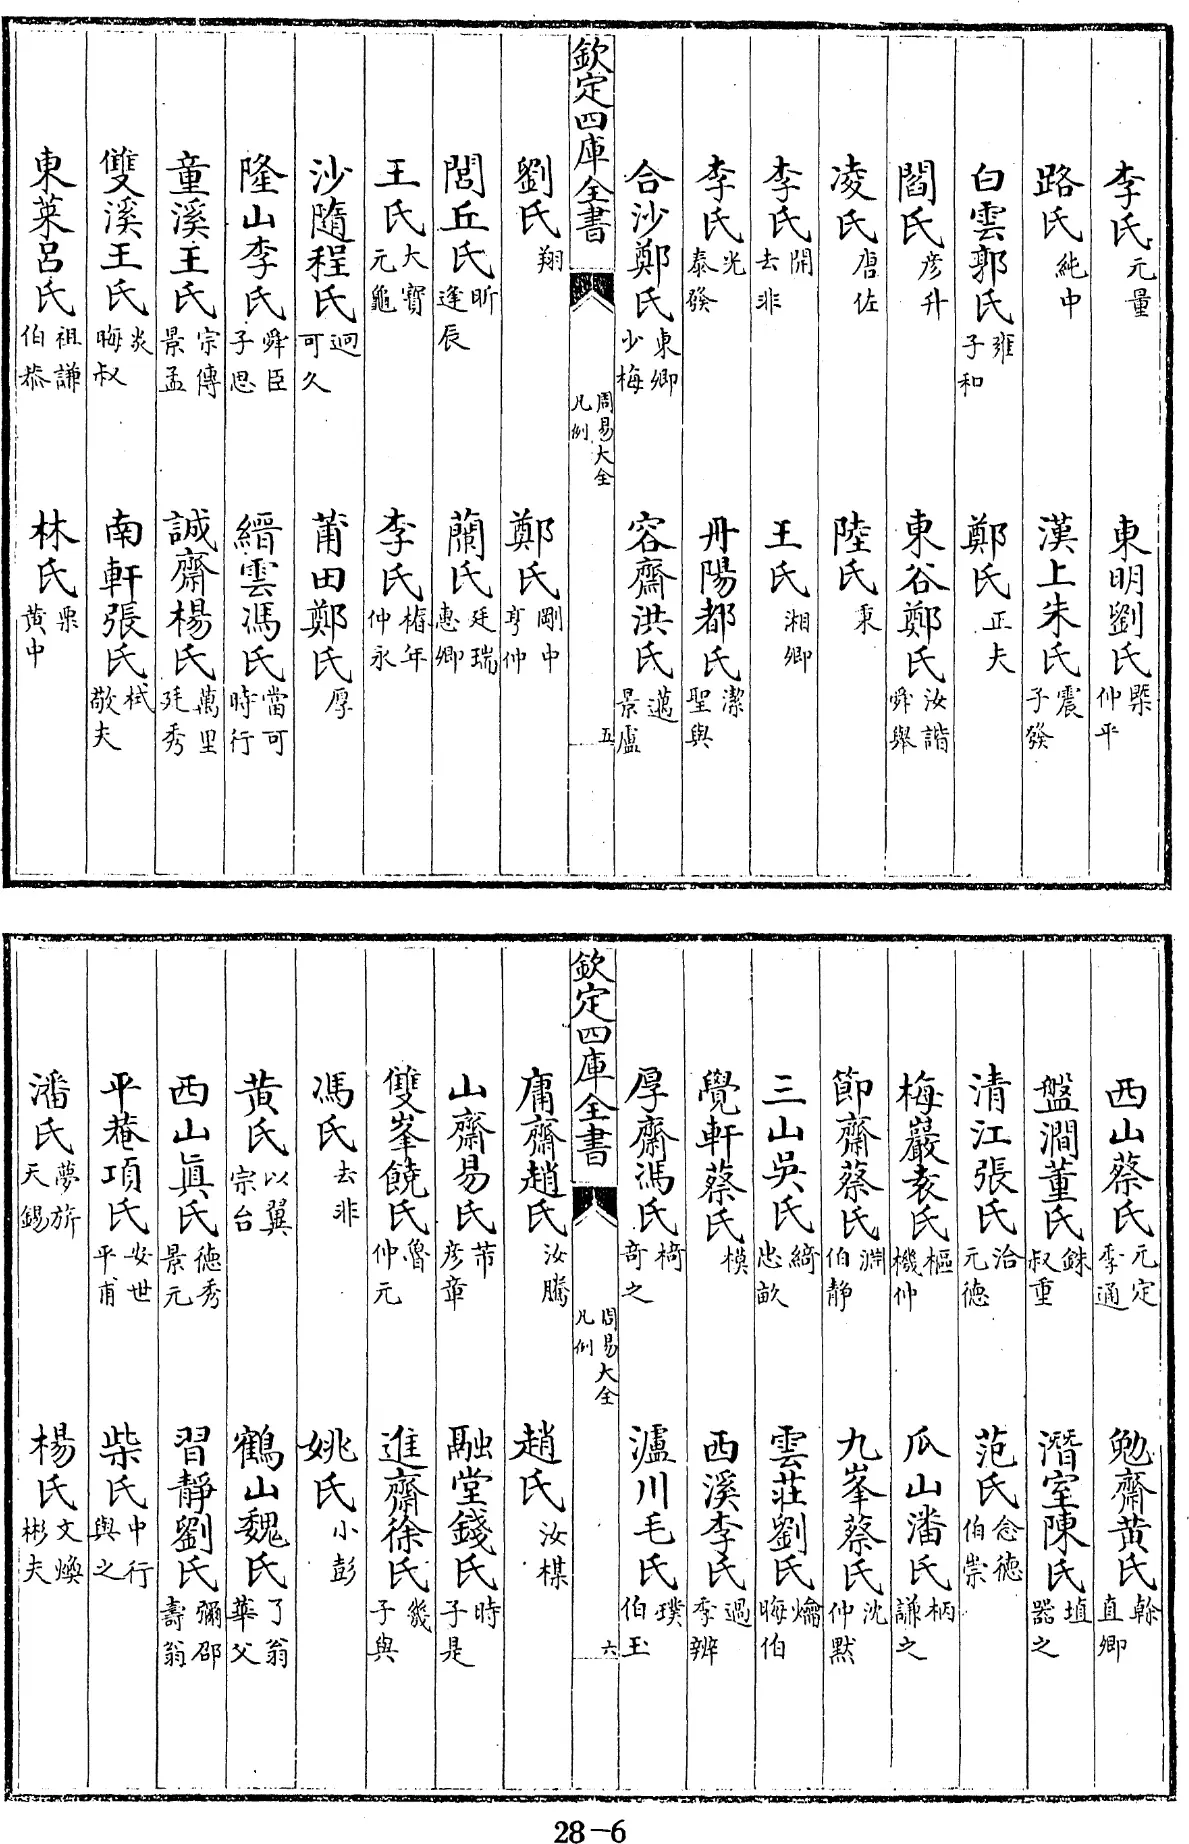 李氏元量 東明劉氏槩仲平
路氏純中 漢上朱氏震子發
白雲郭氏雍子和 鄭氏正夫
閻氏彥升 東谷鄭氏汝諧舜舉
凌氏唐佐 陸氏秉
李氏開去非 王氏湘卿
李氏光泰發 丹陽都氏潔聖與
合沙鄭氏東卿少梅 容齋洪氏邁景盧
欽定四庫全書 周易大全凡例 五
劉氏翔 鄭氏剛中亨仲
閭丘氏昕逢辰 蘭氏廷瑞惠卿
王氏大寶元龜 李氏椿年仲永
沙隨程氏迥可久 莆田鄭氏厚
隆山李氏舜臣子思 縉雲馮氏當可時行
童溪王氏宗傳景孟 誠齋楊氏萬里廷秀
雙溪王氏炎晦叔 南軒張氏栻敬夫
東萊呂氏祖謙伯恭 林氏栗黃中
西山蔡氏元定季通 勉齋黃氏榦直卿
盤澗董氏銖叔重 潛室陳氏埴器之
清江張氏洽元德 范氏念德伯崇
梅巖袁氏樞機仲 瓜山潘氏柄謙之
節齋蔡氏淵伯靜 九峯蔡氏沈仲默
三山吳氏綺忠畝 雲莊劉氏爚晦伯
覺軒蔡氏模 西溪李氏過季辨
厚齋馮氏椅奇之 瀘川毛氏璞伯玉
欽定四庫全書 周易大全凡例 六
庸齋趙氏汝騰 趙氏汝楳
山齋易氏芾彥章 融堂錢氏時子是
雙峯饒氏魯仲元 進齋徐氏幾子與
馮氏去非 姚氏小彭
黃氏以翼宗台 鶴山魏氏了翁華父
西山眞氏德秀景元 習靜劉氏彌邵壽翁
平菴項氏安世平甫 柴氏中行與之
潘氏夢旂天錫 楊氏文煥彬夫
28-6